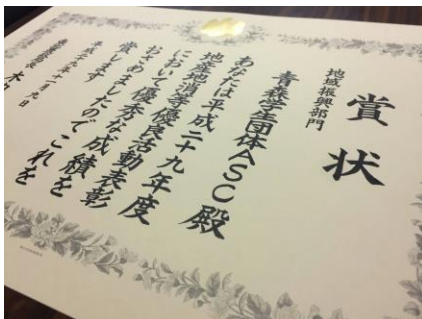 賞状
地域振興部門
青森学生団体ASC 殿
あなたは平成二十九年度
地産地消等優良活動表彰
において優秀な成績を
おさめましたのでこれを
賞します
年十一月九日
木